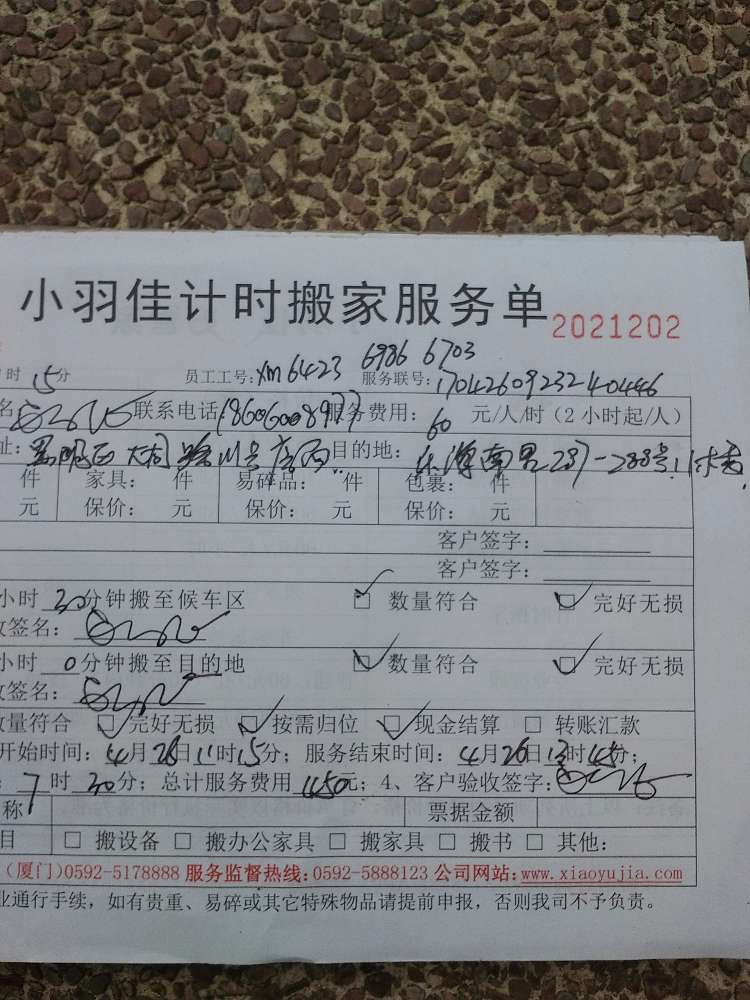 小羽佳计时搬家服务单 2021202
时 15分 员工工号:xm6423 6986 6703
服务联号:1704260923240446
名 联系电话:18606008977 服务费用: 60 元/人/时(2小时起/人)
址: 目的地:
件 家具: 件 易碎品: 件 包裹: 件
元 保价: 元 保价: 元 保价: 元
客户签字:
客户签字:
小时 30分钟搬至候车区 ☑ 数量符合 ☑ 完好无损
收签名:
小时 0分钟搬至目的地 ☑ 数量符合 ☑ 完好无损
收签名:
数量符合 ☑ 完好无损 ☑ 按需归位 ☑ 现金结算 □ 转账汇款
开始时间: 4月26日11时15分; 服务结束时间: 4月26日13时45分;
: 7时30分; 总计服务费用 450元; 4、客户验收签字:
称 票据金额
目 □ 搬设备 □ 搬办公家具 □ 搬家具 □ 搬书 □ 其他:
(厦门)0592-5178888 服务监督热线:0592-5888123 公司网站:www.xiaoyujia.com
业通行手续, 如有贵重、易碎或其它特殊物品请提前申报, 否则我司不予负责。